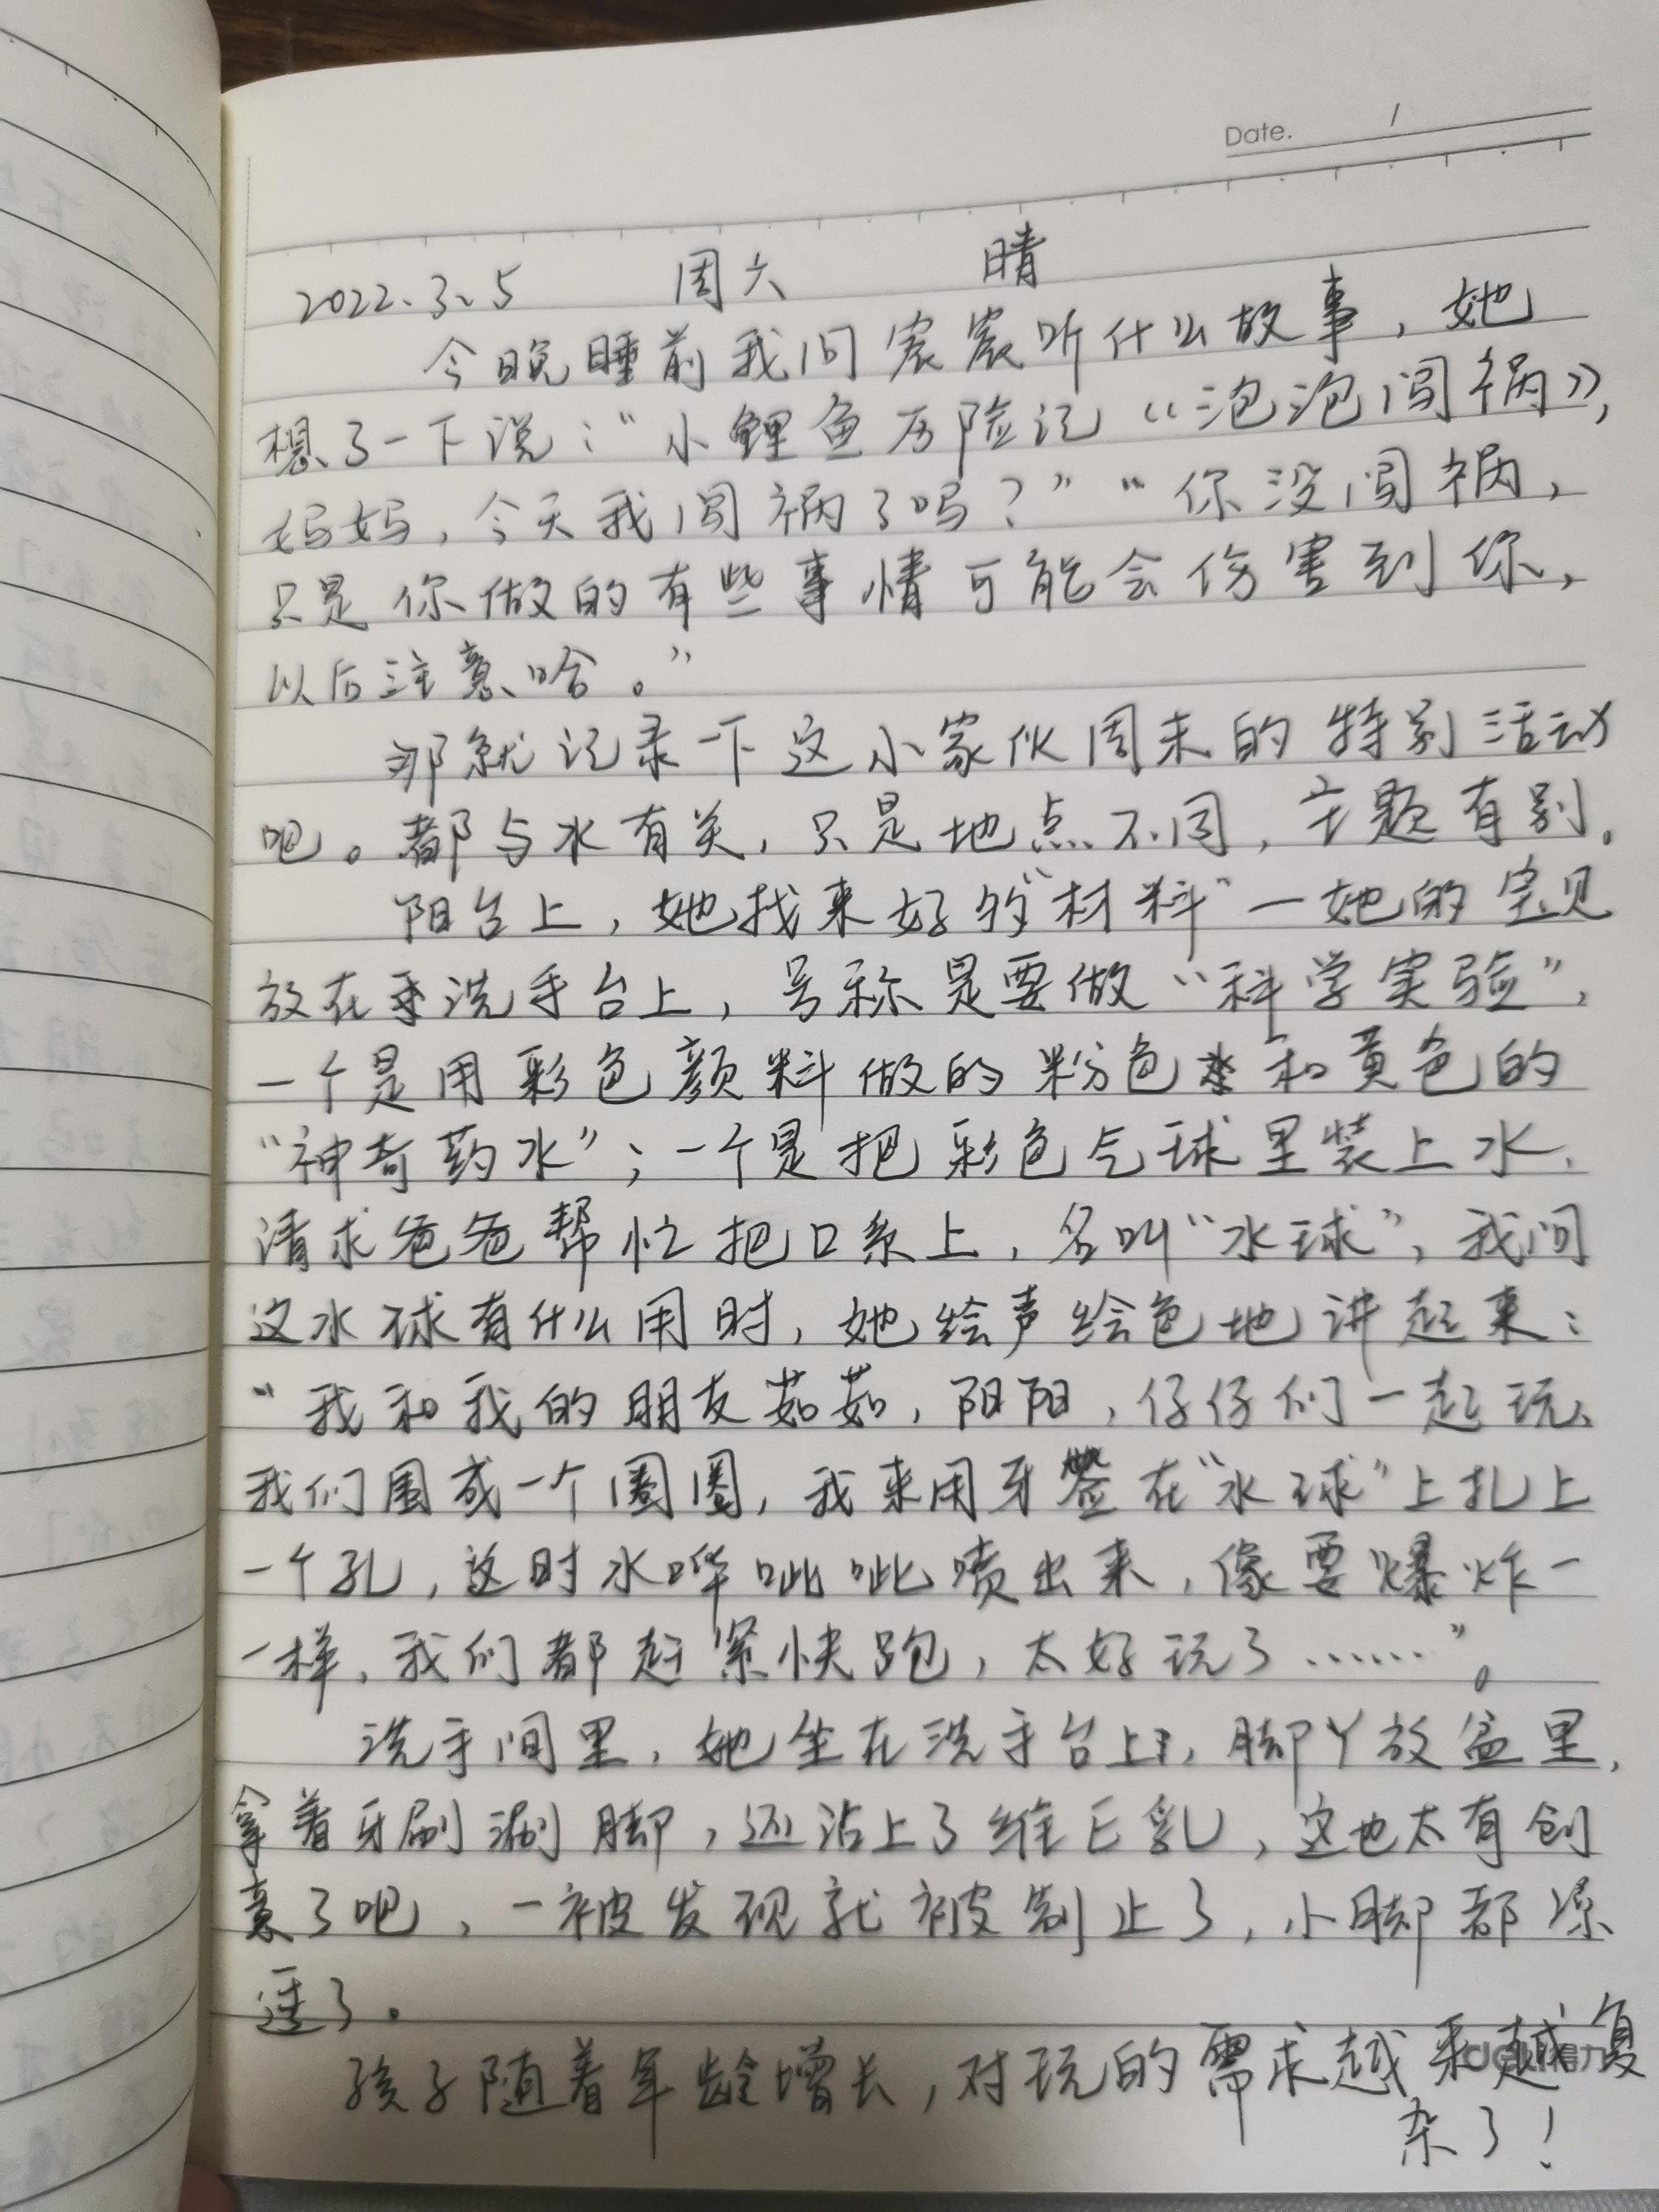 Date. /
2022.3.5 周六 晴
今晚睡前我问宸宸听什么故事，她
想了一下说：“小鲤鱼历险记《泡泡闯祸》，
妈妈，今天我闯祸了吗？”“你没闯祸，
只是你做的有些事情可能会伤害到你，
以后注意哈。”
那就记录一下这小家伙周末的特别活动
吧。都与水有关，只是地点不同，主题有别。
阳台上，她找来好的“材料”—她的宝贝
放在洗手台上，号称是要做“科学实验”，
一个是用彩色颜料做的粉色和黄色的
“神奇药水”；一个是把彩色气球里装上水，
请求爸爸帮忙把口系上，名叫“水球”，我问
这水球有什么用时，她绘声绘色地讲起来：
“我和我的朋友茹茹，阳阳，仔仔们一起玩、
我们围成一个圈圈，我来用牙签在“水球”上扎上
一个孔，这时水哗呲呲喷出来，像要爆炸一
一样，我们都赶紧快跑，太好玩了……”。
洗手间里，她坐在洗手台上，脚丫放盆里，
拿着牙刷涮脚，还沾上了维E乳，这也太有创
意了吧，一被发现就被制止了，小脚都凉
透了。
孩子随着年龄增长，对玩的需求越来越复
杂了！